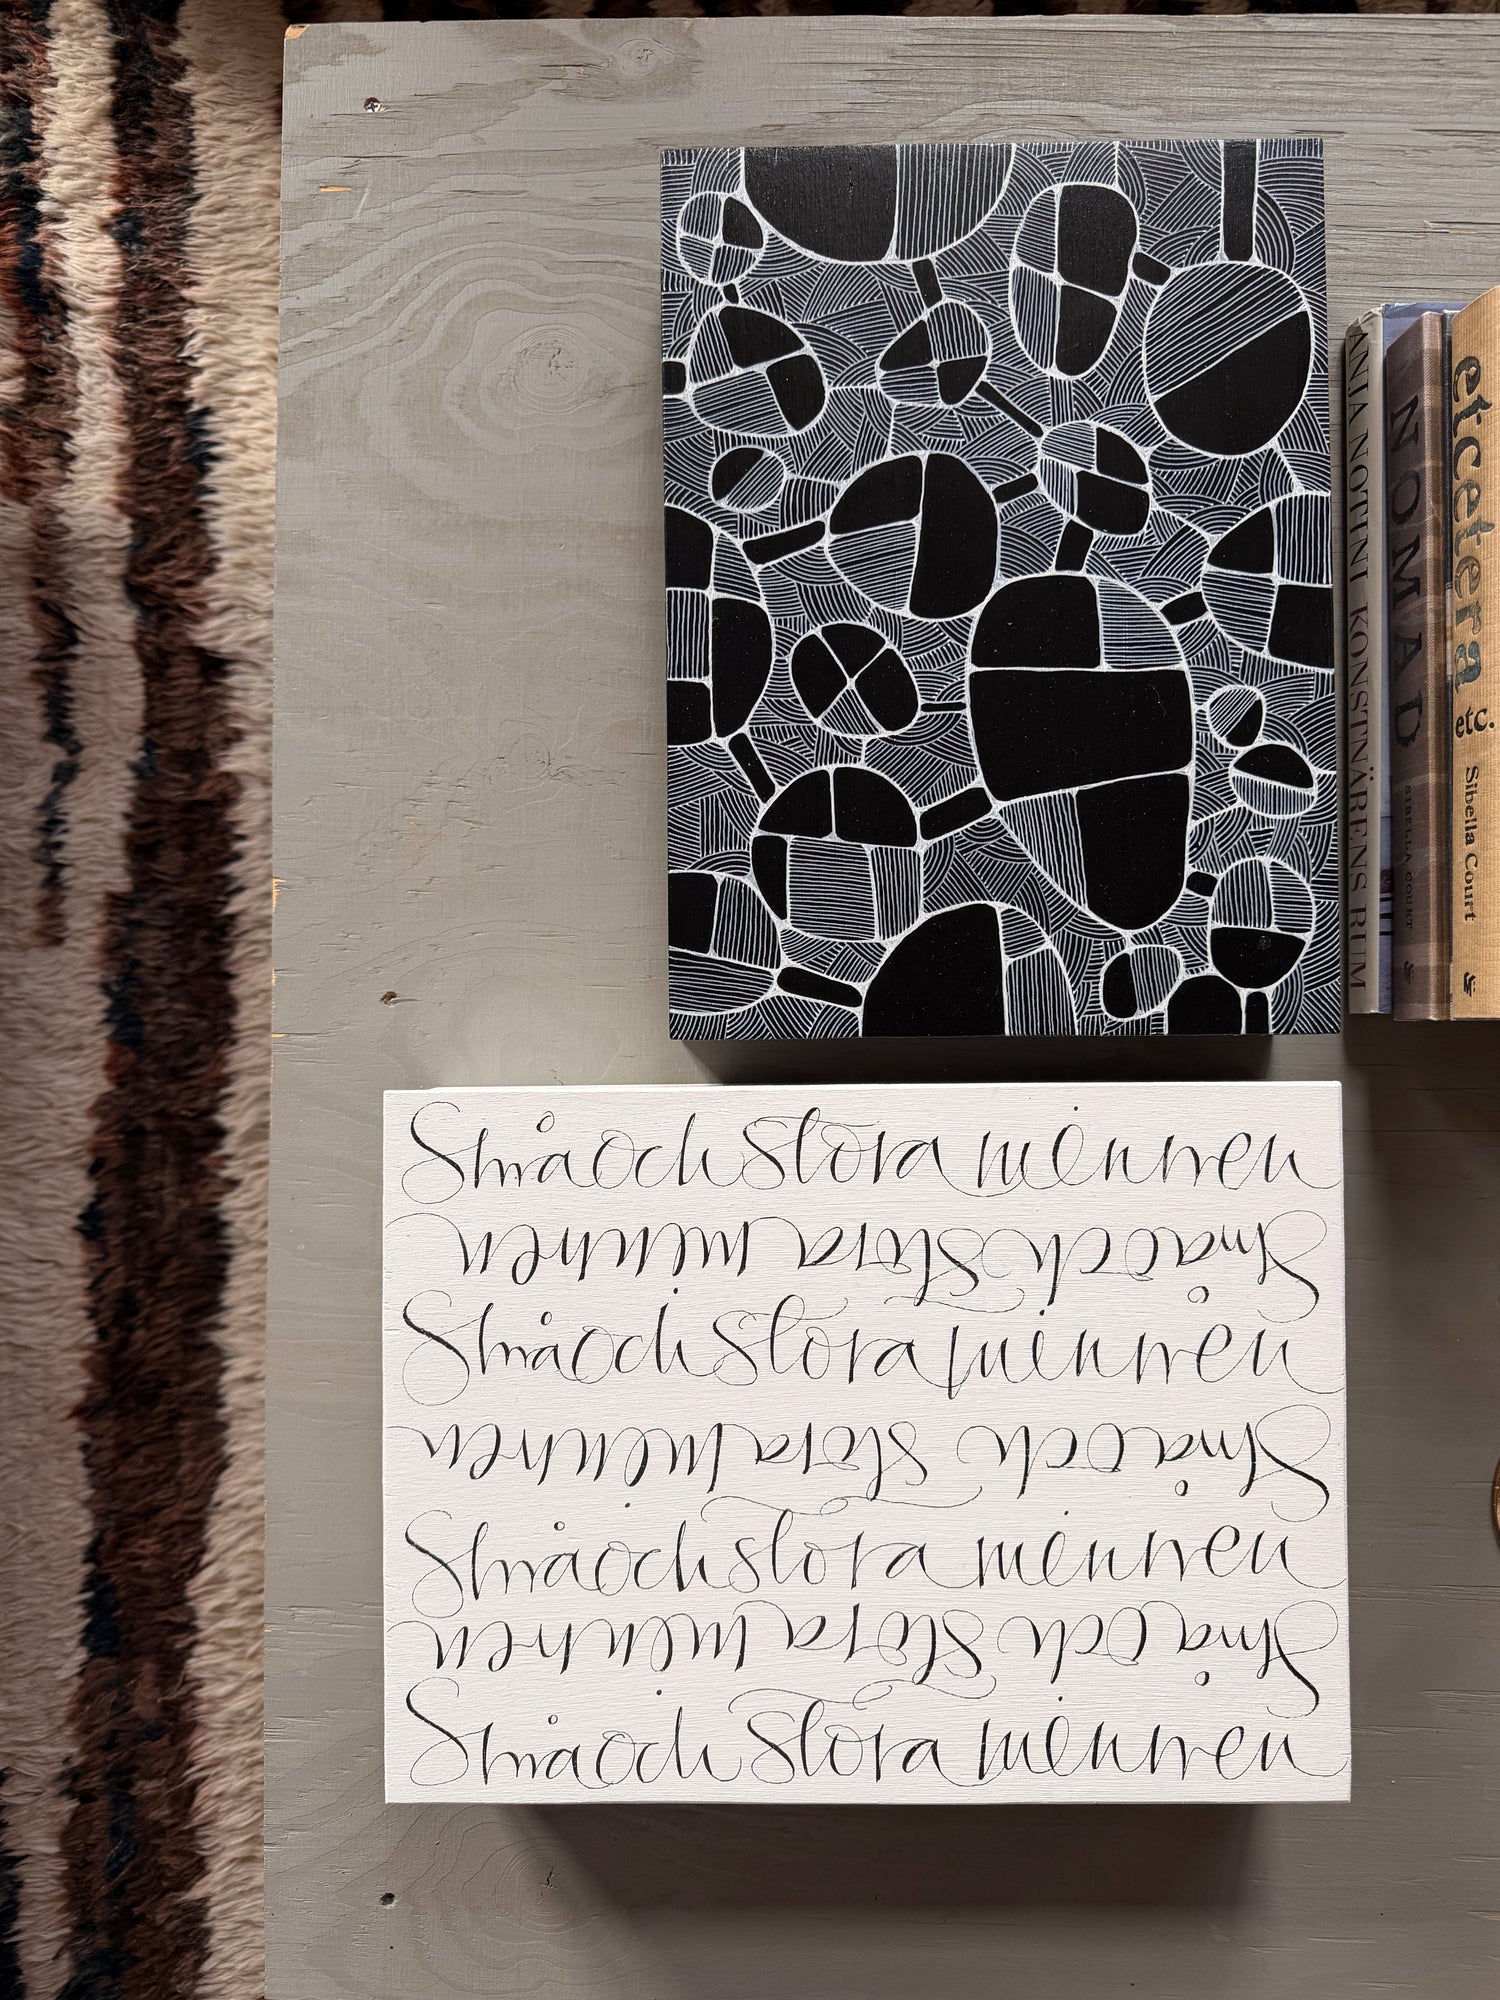 ANIA NOTINI KONSTNÄRENS RUM
NOMAD SIBELLA COURT
etcetera etc. Sibella Court
Små och stora minnen
Små och stora minnen
Små och stora minnen
Små och stora minnen
Små och stora minnen
Små och stora minnen
Små och stora minnen